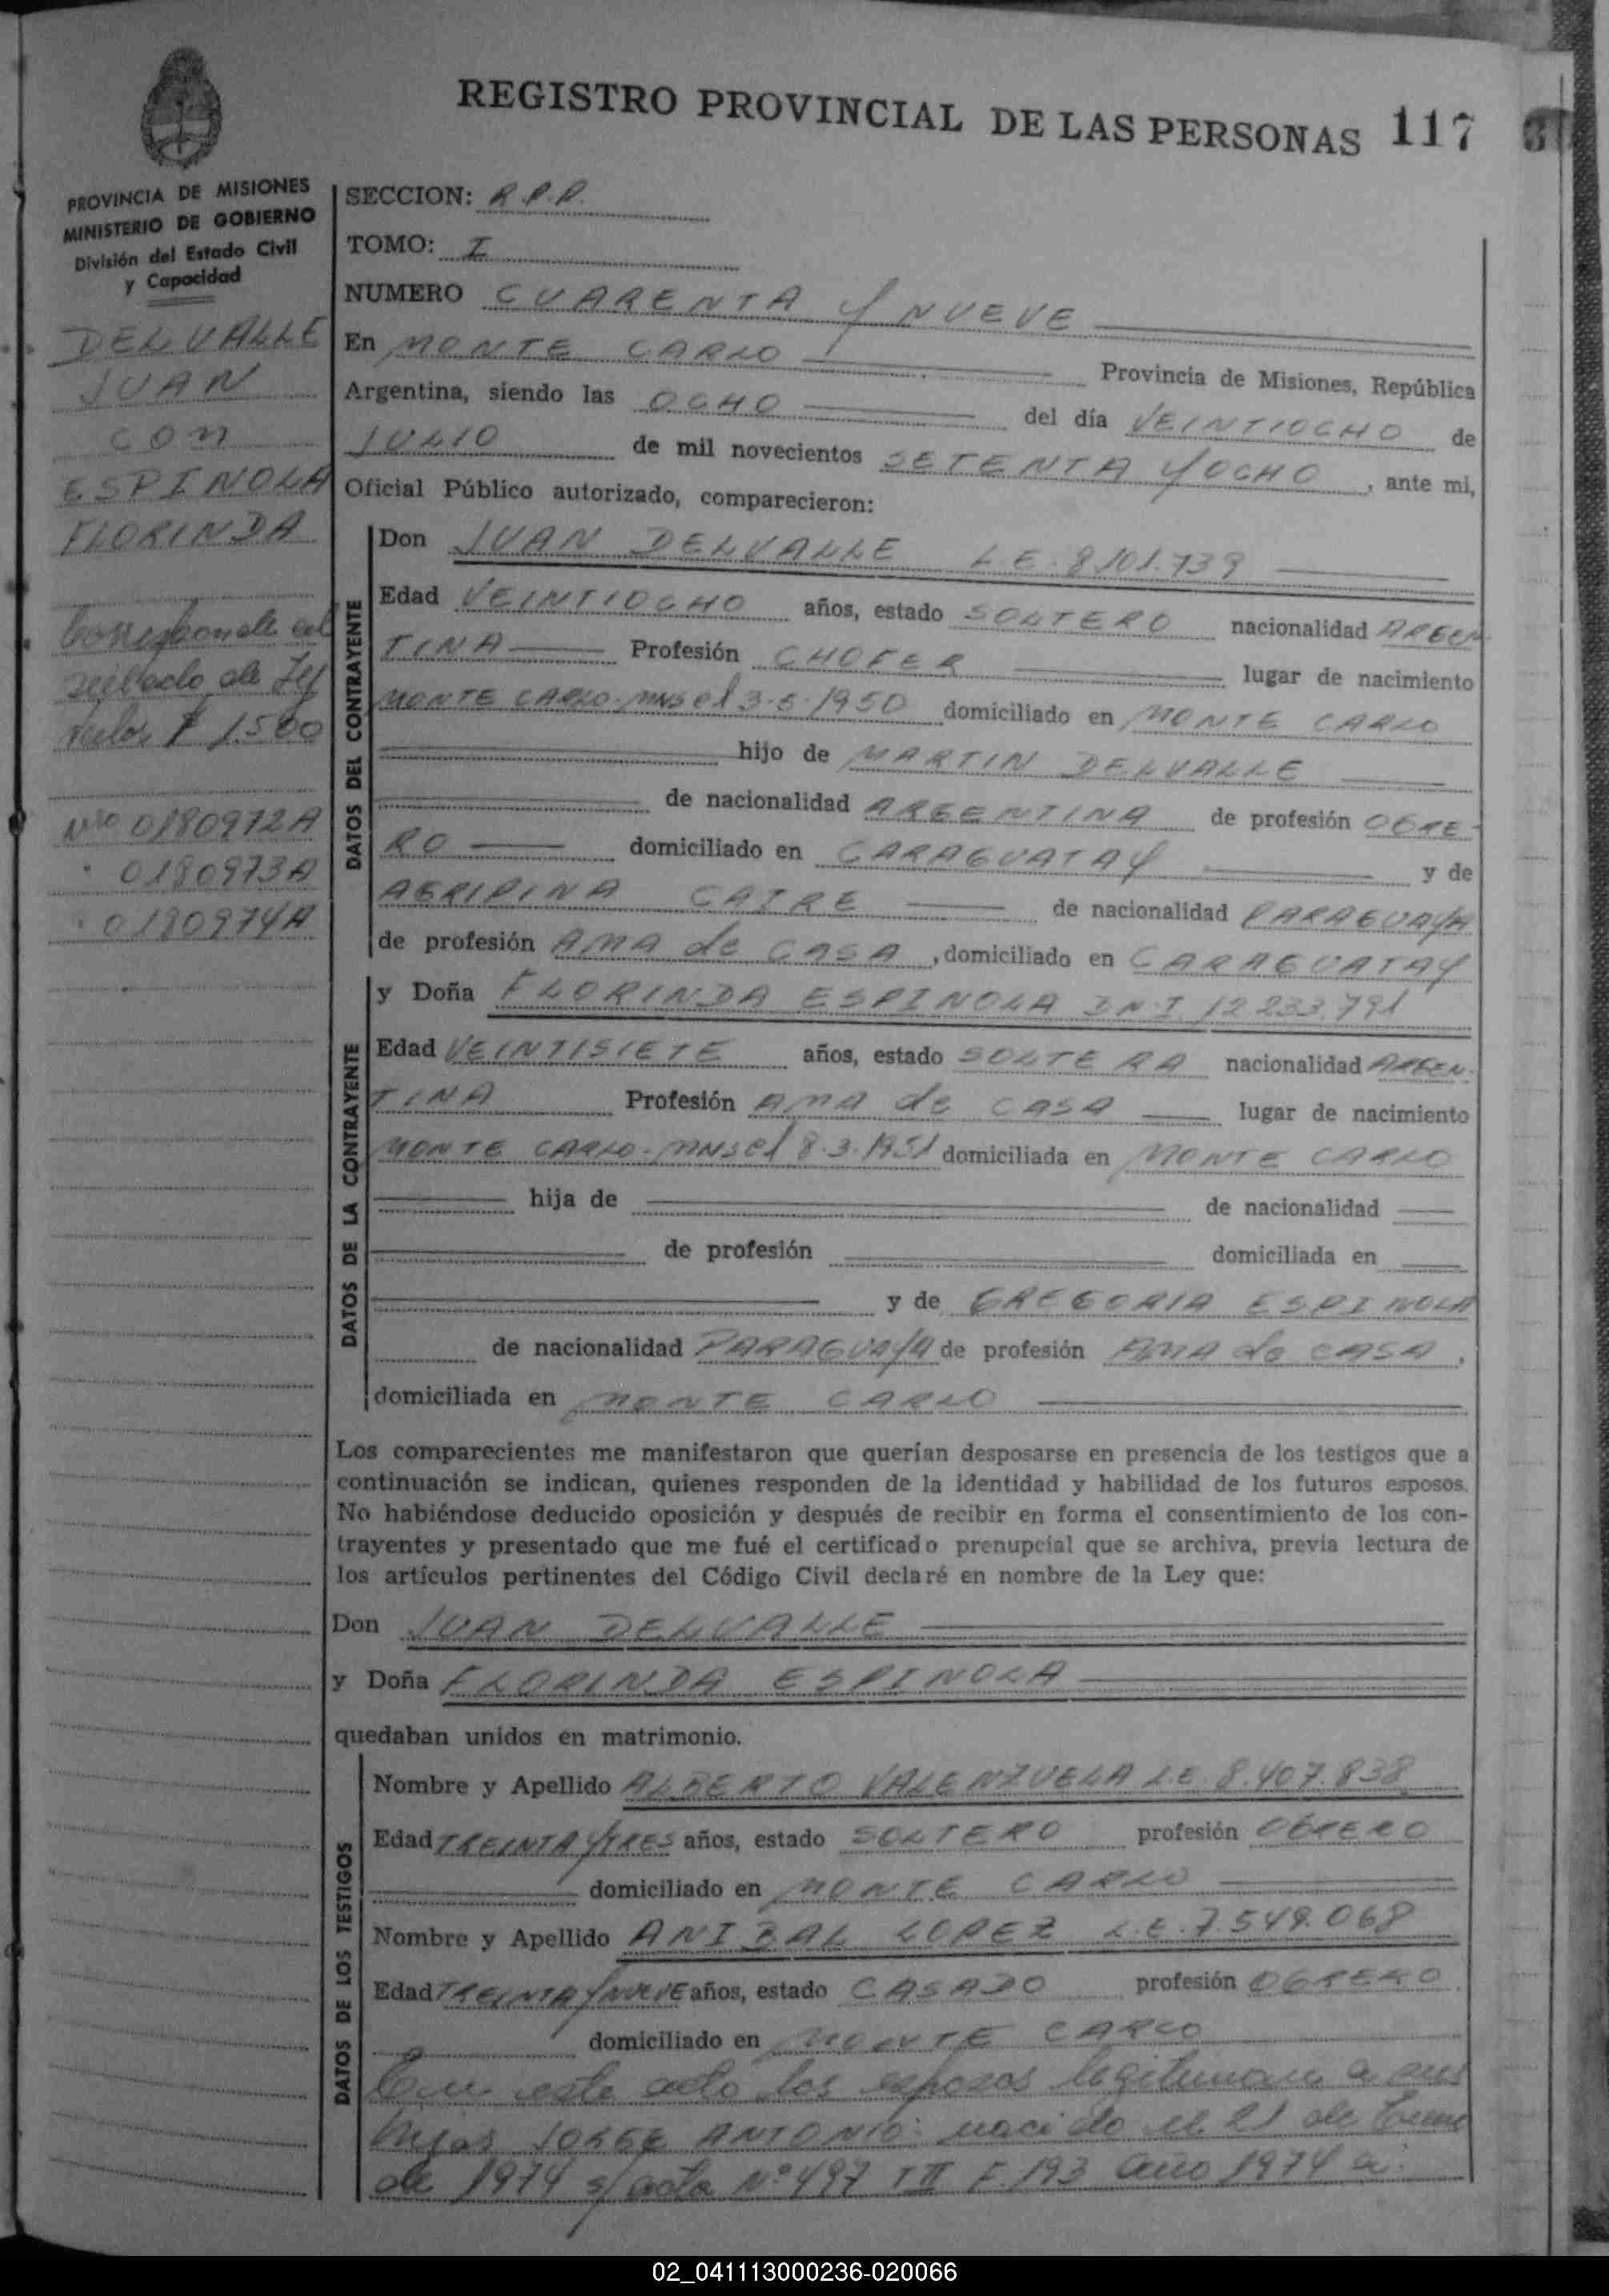 REGISTRO PROVINCIAL DE LAS PERSONAS 117
PROVINCIA DE MISIONES
MINISTERIO DE GOBIERNO
División del Estado Civil
y Capacidad
DELVALLE
JUAN
CON
ESPINOLA
FLORINDA
Corresponde al
sellado de Ley
valor $ 1.500
Nro 0180972A
" 0180973A
" 0180974A
SECCION: R.P.P.
TOMO: I
NUMERO CUARENTA Y NUEVE
En MONTE CARLO Provincia de Misiones, República
Argentina, siendo las OCHO del día VEINTIOCHO de
JULIO de mil novecientos SETENTA Y OCHO, ante mi,
Oficial Público autorizado, comparecieron:
DATOS DEL CONTRAYENTE
Don JUAN DELVALLE L.E. 8.101.739
Edad VEINTIOCHO años, estado SOLTERO nacionalidad ARGEN
TINA Profesión CHOFER lugar de nacimiento
MONTE CARLO-MNS el 3.5.1950 domiciliado en MONTE CARLO
hijo de MARTIN DELVALLE
de nacionalidad ARGENTINA de profesión OBRE-
RO domiciliado en CARAGUATAY y de
AGRIPINA de nacionalidad PARAGUAYA
de profesión AMA de CASA, domiciliado en CARAGUATAY
DATOS DE LA CONTRAYENTE
y Doña FLORINDA ESPINOLA D.N.I. 12.233.791
Edad VEINTISIETE años, estado SOLTERA nacionalidad ARGEN-
TINA Profesión AMA de CASA lugar de nacimiento
MONTE CARLO-MNS el 8.3.1951 domiciliada en MONTE CARLO
hija de de nacionalidad
de profesión domiciliada en
y de GREGORIA ESPINOLA
de nacionalidad PARAGUAYA de profesión AMA de CASA,
domiciliada en MONTE CARLO
Los comparecientes me manifestaron que querían desposarse en presencia de los testigos que a
continuación se indican, quienes responden de la identidad y habilidad de los futuros esposos.
No habiéndose deducido oposición y después de recibir en forma el consentimiento de los con-
trayentes y presentado que me fué el certificado prenupcial que se archiva, previa lectura de
los artículos pertinentes del Código Civil declaré en nombre de la Ley que:
Don JUAN DELVALLE
y Doña FLORINDA ESPINOLA
quedaban unidos en matrimonio.
DATOS DE LOS TESTIGOS
Nombre y Apellido ALBERTO VALENZUELA L.E. 8.407.838
Edad TREINTA Y TRES años, estado SOLTERO profesión OBRERO
domiciliado en MONTE CARLO
Nombre y Apellido ANIBAL LOPEZ L.E. 7.549.068
Edad TREINTA Y NUEVE años, estado CASADO profesión OBRERO
domiciliado en MONTE CARLO
En este acto los esposos legitiman a sus
hijos JORGE ANTONIO: nacido el 21 de
de 1974 s/ acta Nº 497 T II F. 193 año 1974 a:
02_041113000236-020066